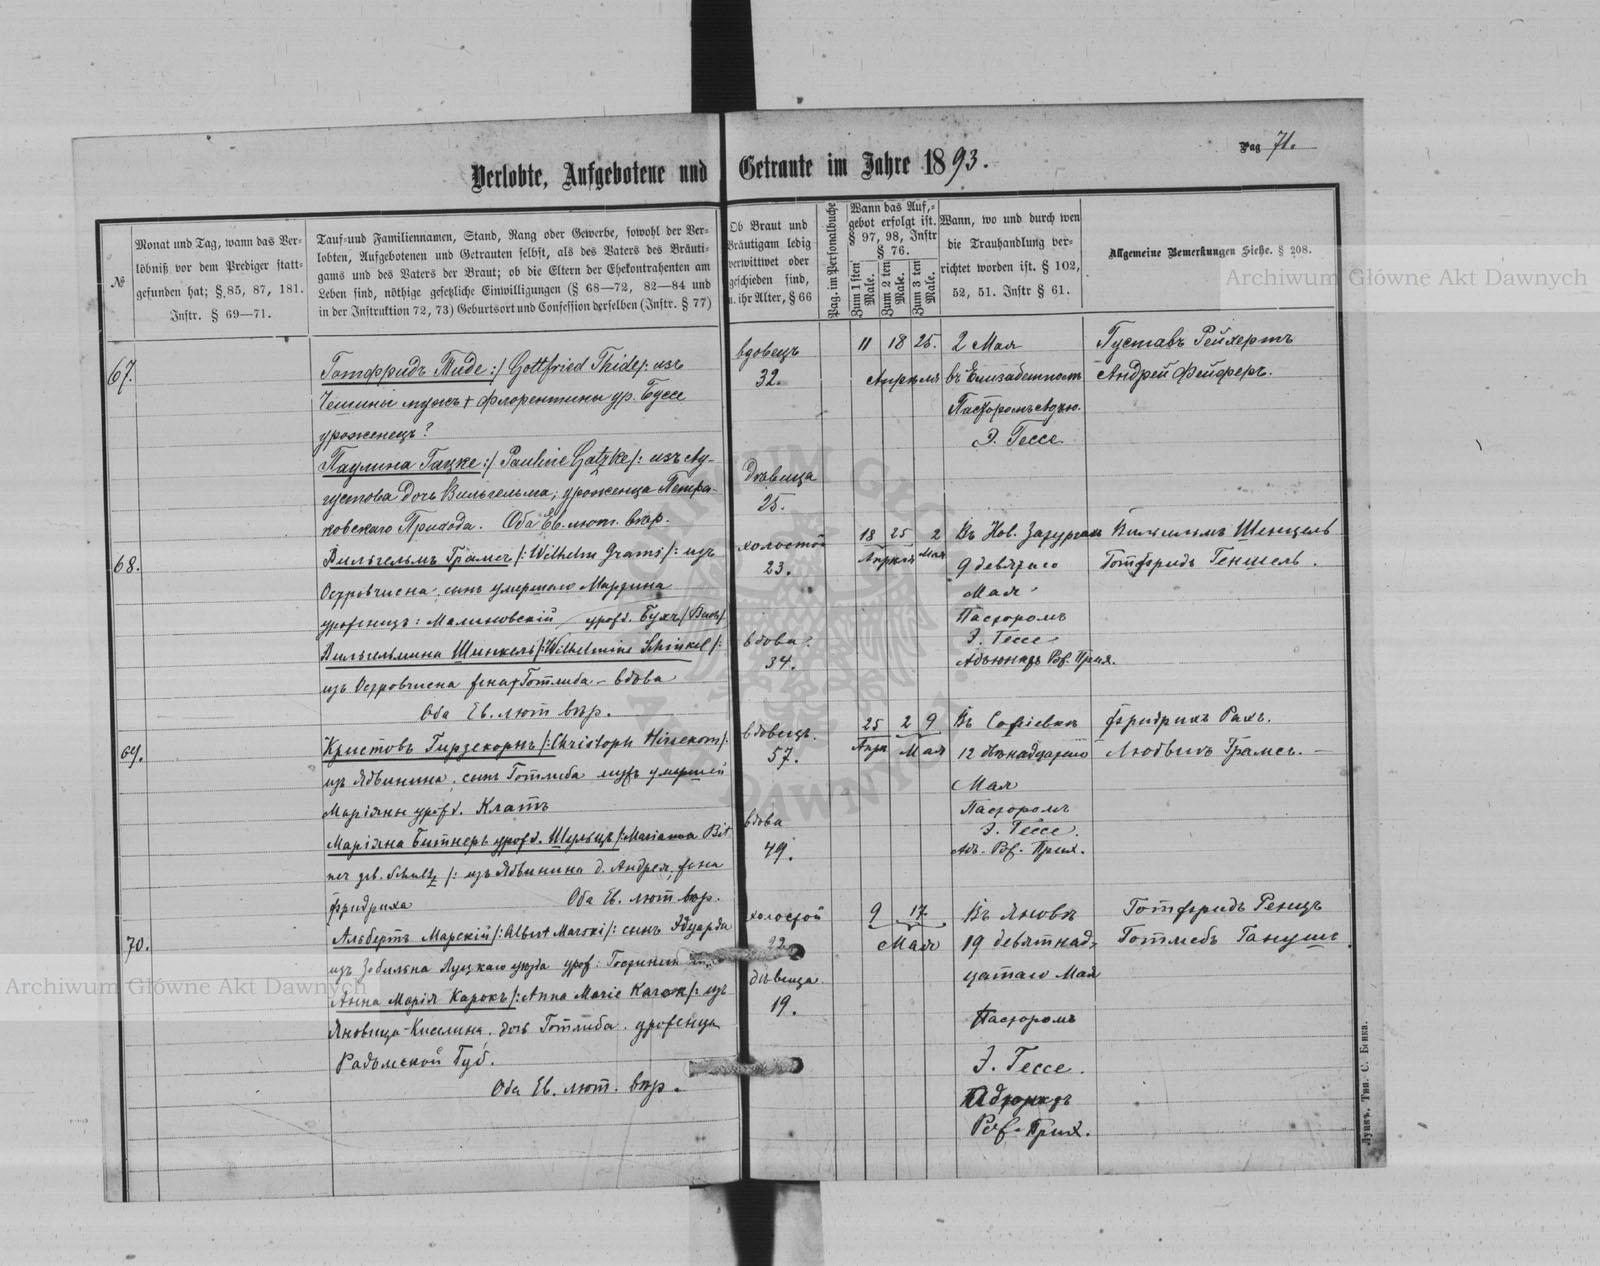 Verlobte, Aufgebotene und Getraute im Jahre 1893.
Pag 71.
№
Monat und Tag, wann das Ver-
löbniß vor dem Prediger statt-
gefunden hat; §.85, 87, 181.
Instr. § 69—71.
Tauf-und Familiennamen, Stand, Rang oder Gewerbe, sowohl der Ver-
lobten, Aufgebotenen und Getrauten selbst, als des Vaters des Bräuti-
gams und des Vaters der Braut; ob die Eltern der Ehekontrahenten am
Leben sind, nöthige gesetzliche Einwilligungen (§ 68—72, 82—84 und
in der Instruktion 72, 73) Geburtsort und Confession derselben (Instr. § 77)
Ob Braut und
Bräutigam ledig
verwittwet oder
geschieden sind,
u. ihr Alter, § 66
Pag. im Personalbuche
Wann das Auf-
gebot erfolgt ist.
§ 97, 98, Instr
§ 76.
Zum 1 sten Male.
Zum 2 ten Male.
Zum 3 ten Male.
Wann, wo und durch wen
die Trauhandlung ver-
richtet worden ist. § 102,
52, 51. Instr § 61.
Allgemeine Bemerkungen Siehe. § 208.
67.
Готфридъ Тиде :/ Gottfried Thide/: изъ
мужъ + Флорентины ур. Буссе
уроженецъ?
Паулина Гацке :/ Pauline Gatzke/: изъ Ав-
густова дочь Вильгельма, уроженца Петро-
ковскаго Прихода. Оба Ев. лют. вѣр.
вдовецъ
32.
Дѣвица
25.
11 18 25.
Апрѣля
2 Мая
въ Елизабетполь
Пасторомъ
Э. Гессе
Густавъ Рейхертъ
Андрей Фейферъ.
68.
Вильгельмъ Грамсъ /: Wilhelm Grams /: изъ
Островчиена, сынъ умершаго Мартина
Вильгельмина Шинкель /: Wilhelmine Schinkel /:
изъ Островчиена жена + Готлиба – вдова
Оба Ев. лют вѣр.
холостой
23.
вдова
34.
18 25 2
Апрѣля Мая
Въ Нов.
9 девятаго
Мая
Пасторомъ
Э. Гессе
Адъюнктъ Рож. Прих.
Вильгельмъ Шенцель
Готфридъ Геншель.
69.
Кристовъ Гирзекорнъ /: Christoph Hirsekorn /:
изъ Ядвинина, сынъ Готлиба мужъ умершей
Маріяны урожд. Клатъ
Маріяна Битнеръ урожд. Шульцъ /: Marianna Bit
ner geb. Schultz /: изъ Ядвинина д. Андрея, жена
Фридриха Оба Ев. лют вѣр.
вдовецъ.
57.
вдова
49.
25 2 9
Апр. Мая
Въ Софіевкѣ
12 двѣнадцатаго
Мая
Пасторомъ
Э. Гессе.
Ад. Рож. Прих.
Фридрихъ Рахъ.
Людвигъ Грамсъ. –
70.
Альбертъ Марскій /: Albert Marski /: сынъ Эдуарда
Луцкаго уѣзда
Анна Марія Карокъ /: Anna Marie Karok /: изъ
дочь Готлиба. уроженца
Радомской Губ.
Оба Ев. лют. вѣр.
холостой
22
дѣвица
19.
9 17.
Мая
Въ Яновкѣ
19 девятнад-
цатаго Мая
Пасторомъ
Э. Гессе.
Адъюнктъ
Рож. Прих.
Готфридъ Ренцъ
Готлебъ Ганушъ
Луцкъ, Тип. С. Бонка.
Archiwum Główne Akt Dawnych
Archiwum Główne Akt Dawnych